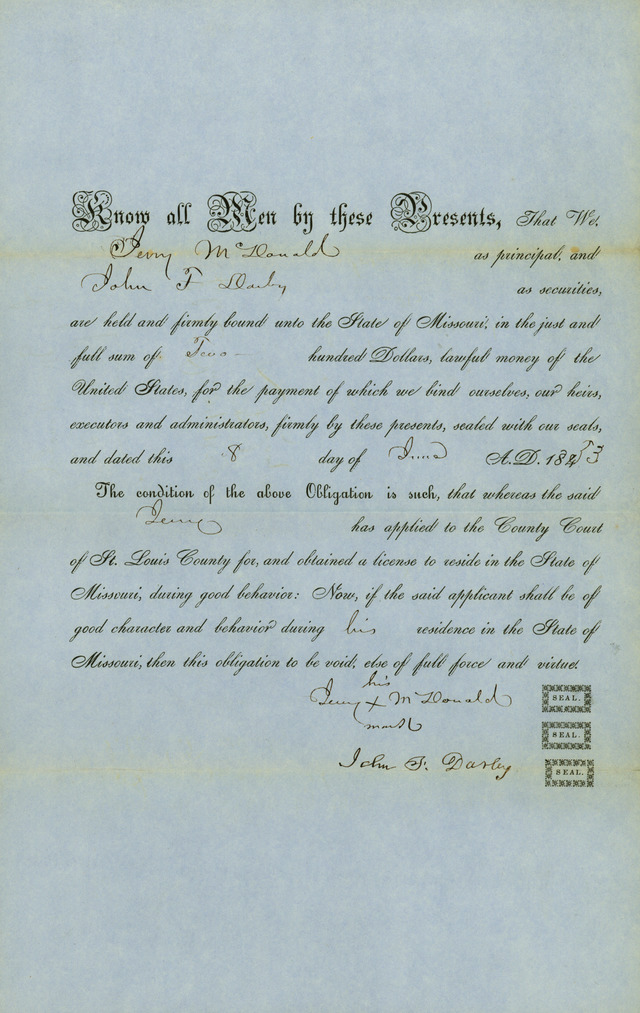 Know all Men by these Presents, That We,
Jerry McDonald as principal, and
John F Darby as securities,
are held and firmly bound unto the State of Missouri, in the just and
full sum of Two hundred Dollars, lawful money of the
United States, for the payment of which we bind ourselves, our heirs,
executors and administrators, firmly by these presents, sealed with our seals,
and dated this 8 day of June A.D. 1853
The condition of the above Obligation is such, that whereas the said
Jerry has applied to the County Court
of St. Louis County for, and obtained a license to reside in the State of
Missouri, during good behavior: Now, if the said applicant shall be of
good character and behavior during his residence in the State of
Missouri, then this obligation to be void, else of full force and virtue.
his
Jerry x McDonald SEAL.
mark SEAL.
John F. Darby SEAL.